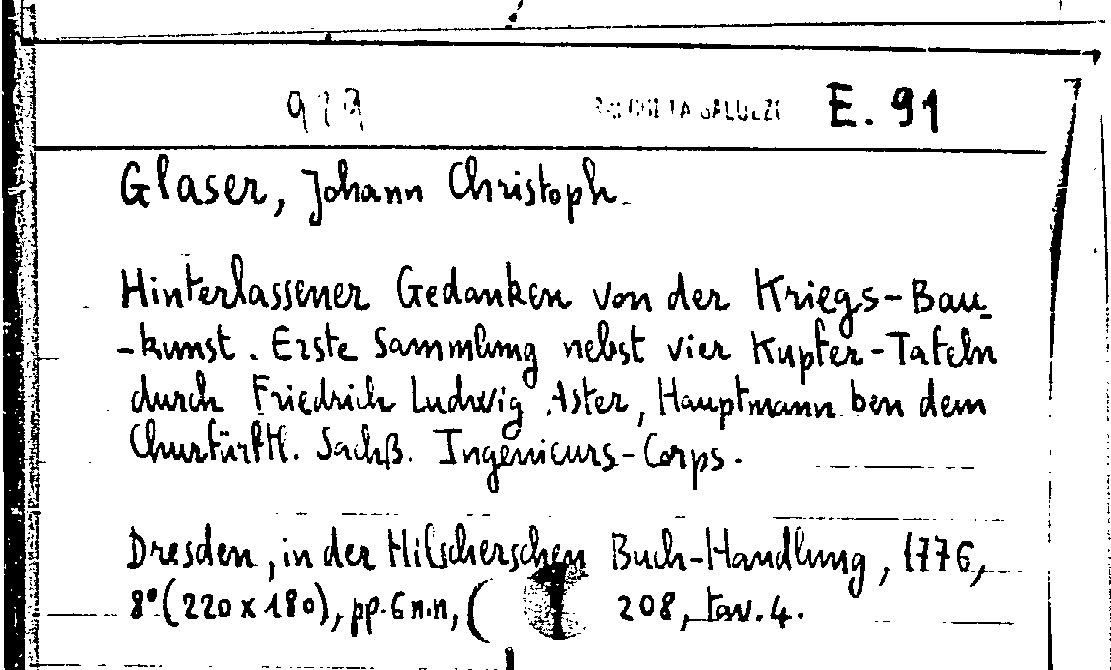 929 E. 91
Glaser, Johann Christoph.
Hinterlassener Gedanken von der Kriegs-Bau-
-kunst. Erste Sammlung nebst vier Kupfer-Tafeln
durch Friedrich Ludwig Aster, Hauptmann ben dem
Churfürftl. Sachß. Ingenieurs-Corps.
Dresden, in der Hilscherschen Buch-Handlung, 1776,
8°(220 x 180), pp. 6 n.n, ( 208, tav. 4.